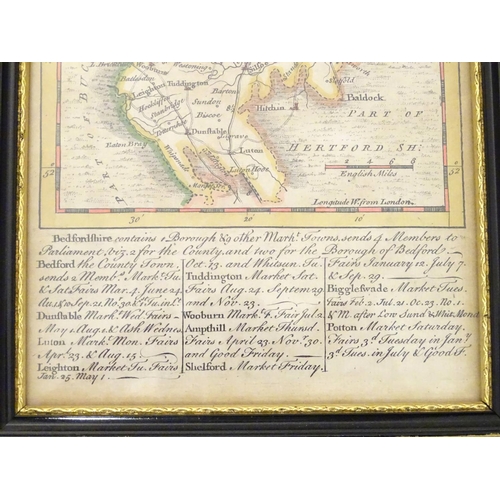 Potsd.
Woobourn
Westoning
Battlesden
Leighton
Tuddington
Hockliffe
Barton
Stanbridge
Sundon
Hitchin
Baldock
Totternhoe
Biscoe
PART OF
Dunstable
Eaton Bray
Luton
HERTFORD SHr.
PART OF BUC
Luton Hoo
2 4 6 8
English Miles
52
52
Longitude Wt. from London.
30' 20 10
Bedfordshire contains 1 Borough & 9 other Markt. Towns, sends 4 Members to
Parliament, viz. 2 for the County, and two for the Borough of Bedford.
Bedford the County Town,
sends 2 Memb.s Markt. Tu.
& Sat. Fairs Mar. 4. June 24
Dunstable Markt. Wed. Fairs
May Aug. 1. & Ash Wednes.
Luton Markt. Mon. Fairs
Apr. 23. & Aug. 15.
Leighton Market Tu. Fairs
Jan. 25. May 1.
Oct. 13. and Whitsun Tu.
Tuddington Market Sat.
Fairs Aug. 24. Septem. 29
and Nov. 23.
Wooburn Markt. F. Fair Jul. 2
Ampthill Market Thursd.
Fairs April 23. Novr. 30.
and Good Friday.
Shefford Market Friday.
Fairs January 12. July 7.
& Sep. 29.
Biggleswade Market Tues.
Fairs Feb. 2. Jul. 21. Oc. 23. No. 1.
& M. after Low Sund & Whit. Mond.
Potton Market Saturday.
Fairs, 3d. Tuesday in Jany.
3d. Tues. in July & Good F.